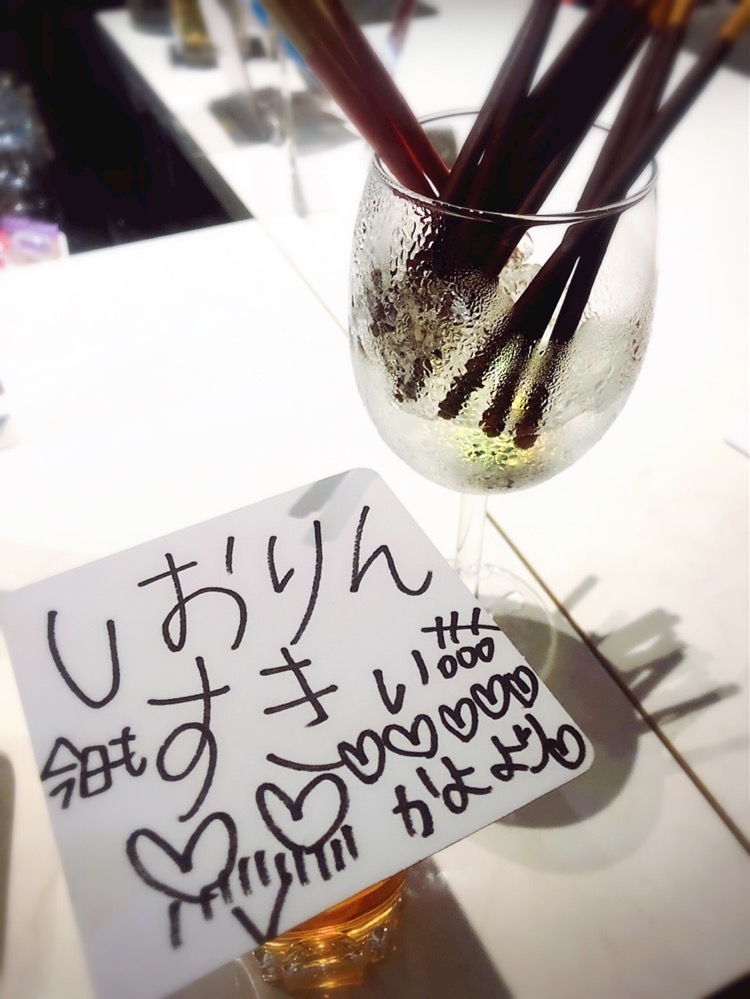 しおりん
今日もすきぃ
♡♡♡♡♡
かよよどん♡